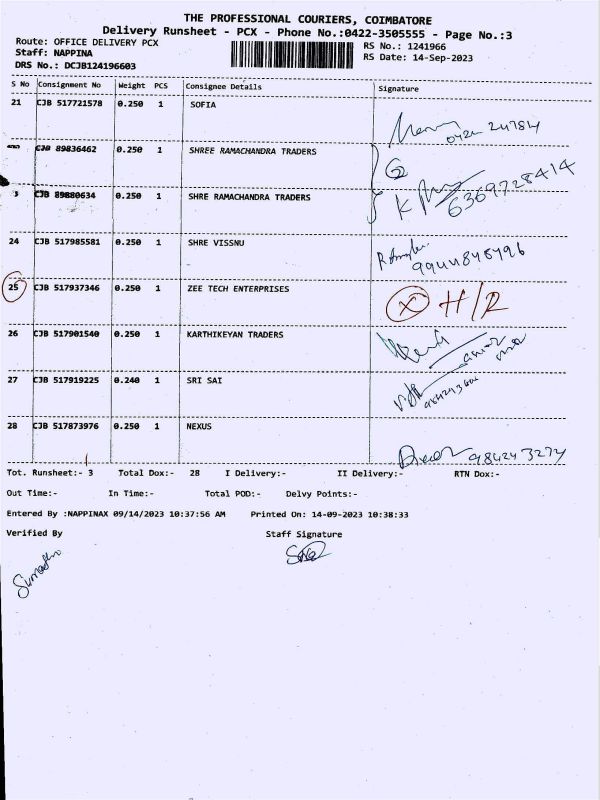 THE PROFESSIONAL COURIERS, COIMBATORE
Delivery Runsheet - PCX - Phone No.:0422-3505555 - Page No.:3
Route: OFFICE DELIVERY PCX RS No.: 1241966
Staff: NAPPINA RS Date: 14-Sep-2023
DRS No.: DCJB124196603
S No Consignment No Weight PCS Consignee Details Signature
21 CJB 517721578 0.250 1 SOFIA
CJB 89836462 0.250 1 SHREE RAMACHANDRA TRADERS
3 CJB 89880634 0.250 1 SHRE RAMACHANDRA TRADERS
6369728414
24 CJB 517985581 0.250 1 SHRE VISSNU
9944848496
25 CJB 517937346 0.250 1 ZEE TECH ENTERPRISES X H/R
26 CJB 517901540 0.250 1 KARTHIKEYAN TRADERS
27 CJB 517919225 0.240 1 SRI SAI
28 CJB 517873976 0.250 1 NEXUS
Tot. Runsheet:- 3 Total Dox:- 28 I Delivery:- II Delivery:- RTN Dox:-
Out Time:- In Time:- Total POD:- Delvy Points:-
Entered By :NAPPINAX 09/14/2023 10:37:56 AM Printed On: 14-09-2023 10:38:33
Verified By Staff Signature